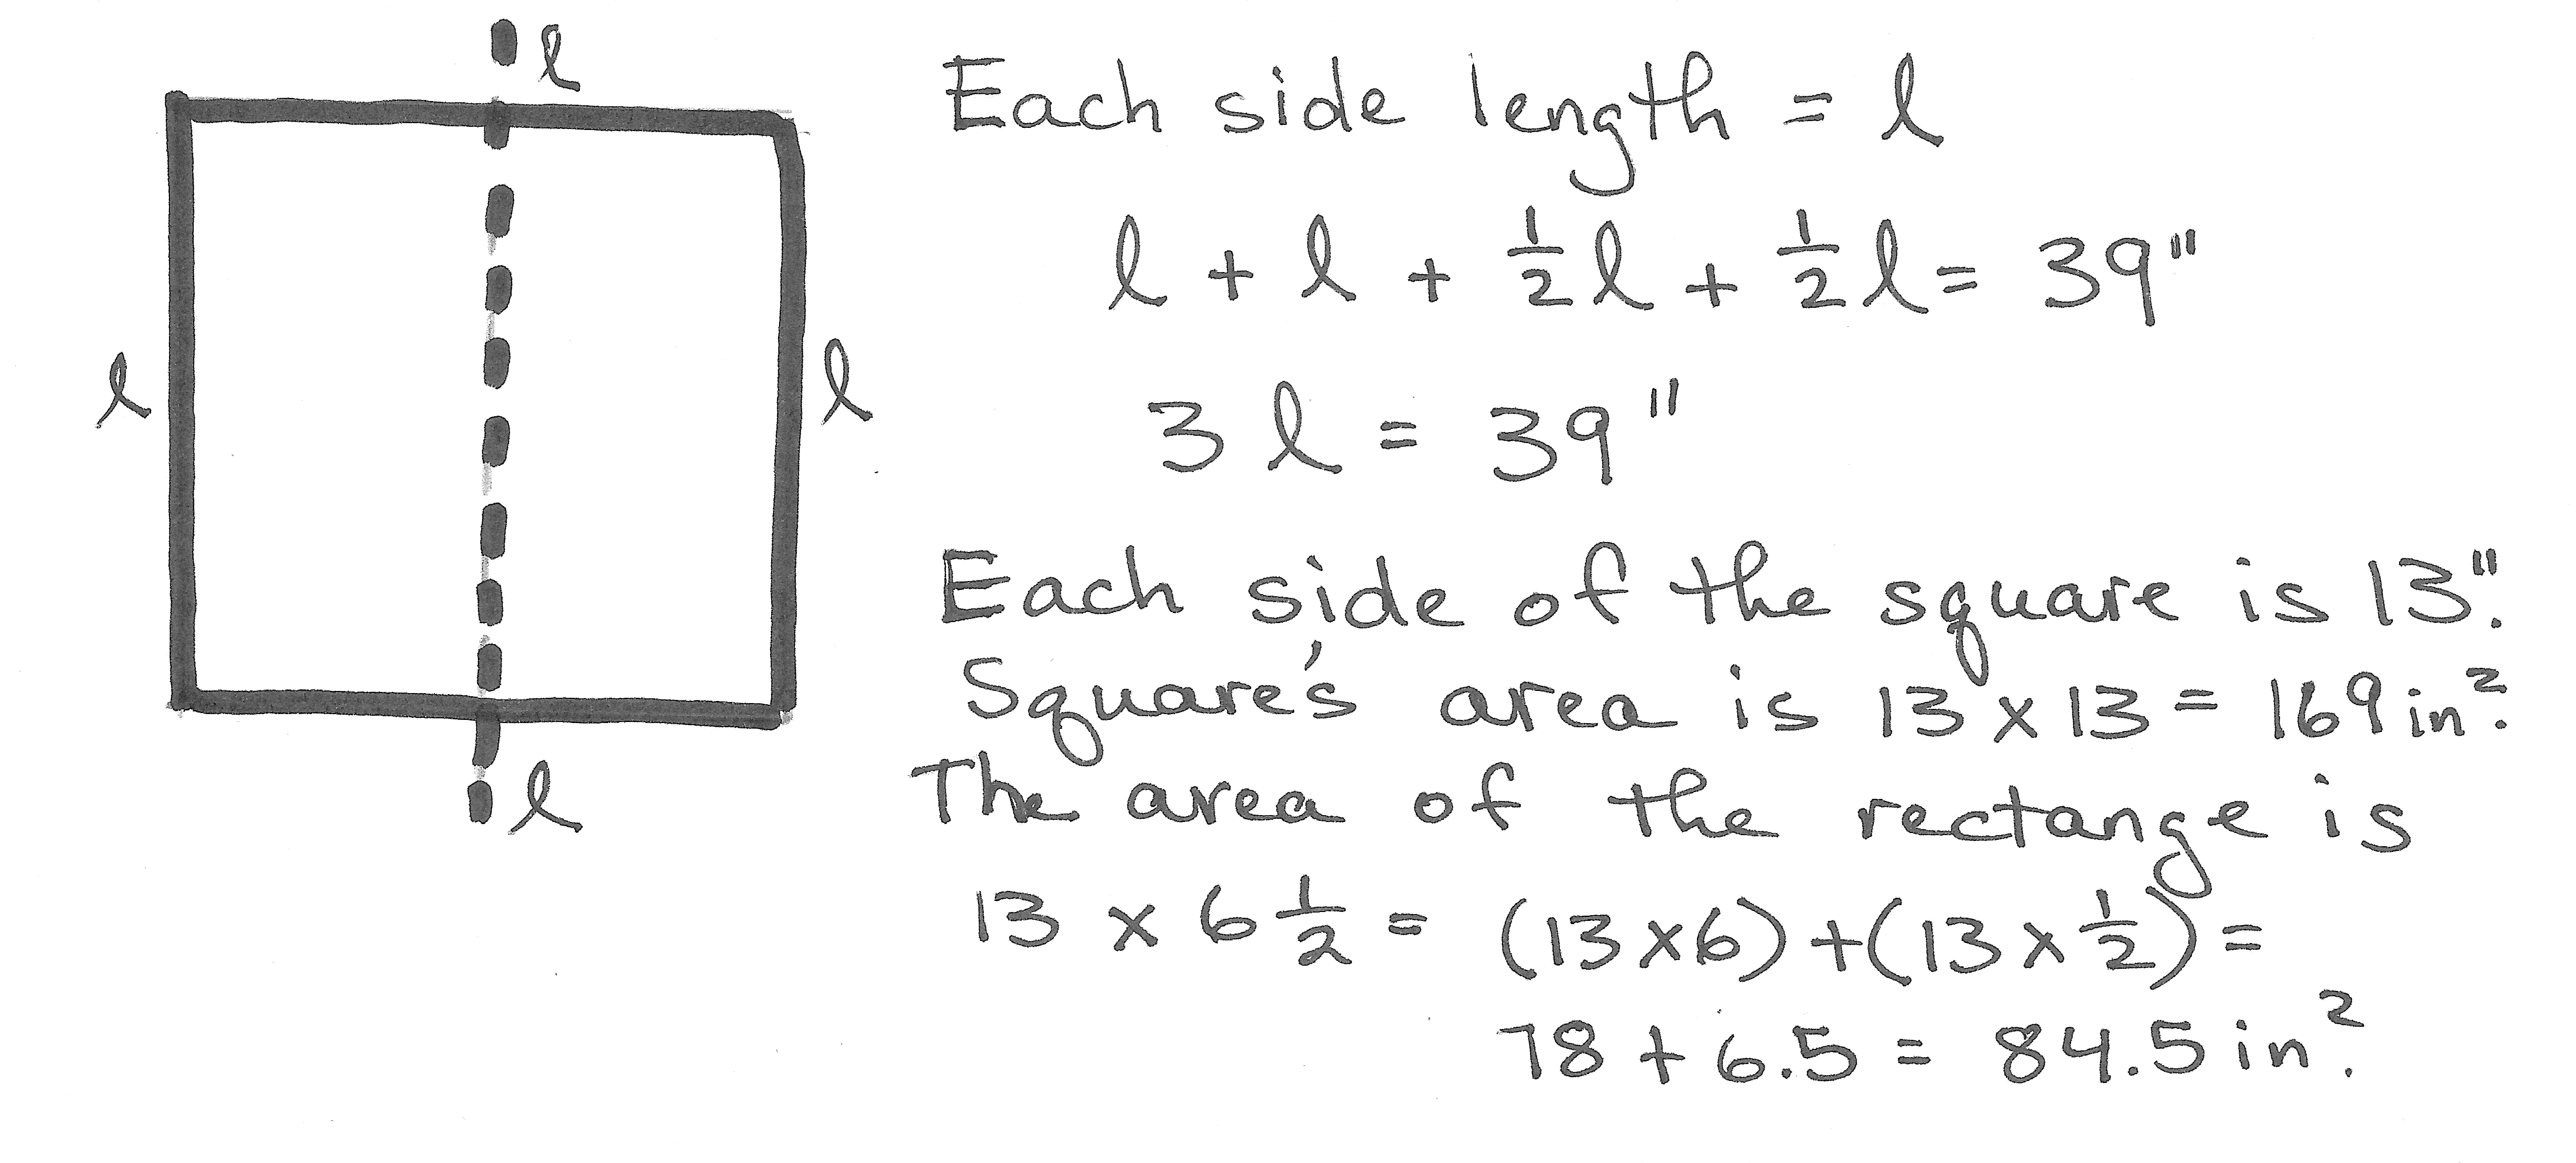 l
l
l
l
Each side length = l
l + l + ½l + ½l = 39"
3l = 39"
Each side of the square is 13".
Square's area is 13 x 13 = 169 in².
The area of the rectange is
13 x 6½ = (13x6)+(13x½) =
78 + 6.5 = 84.5 in².